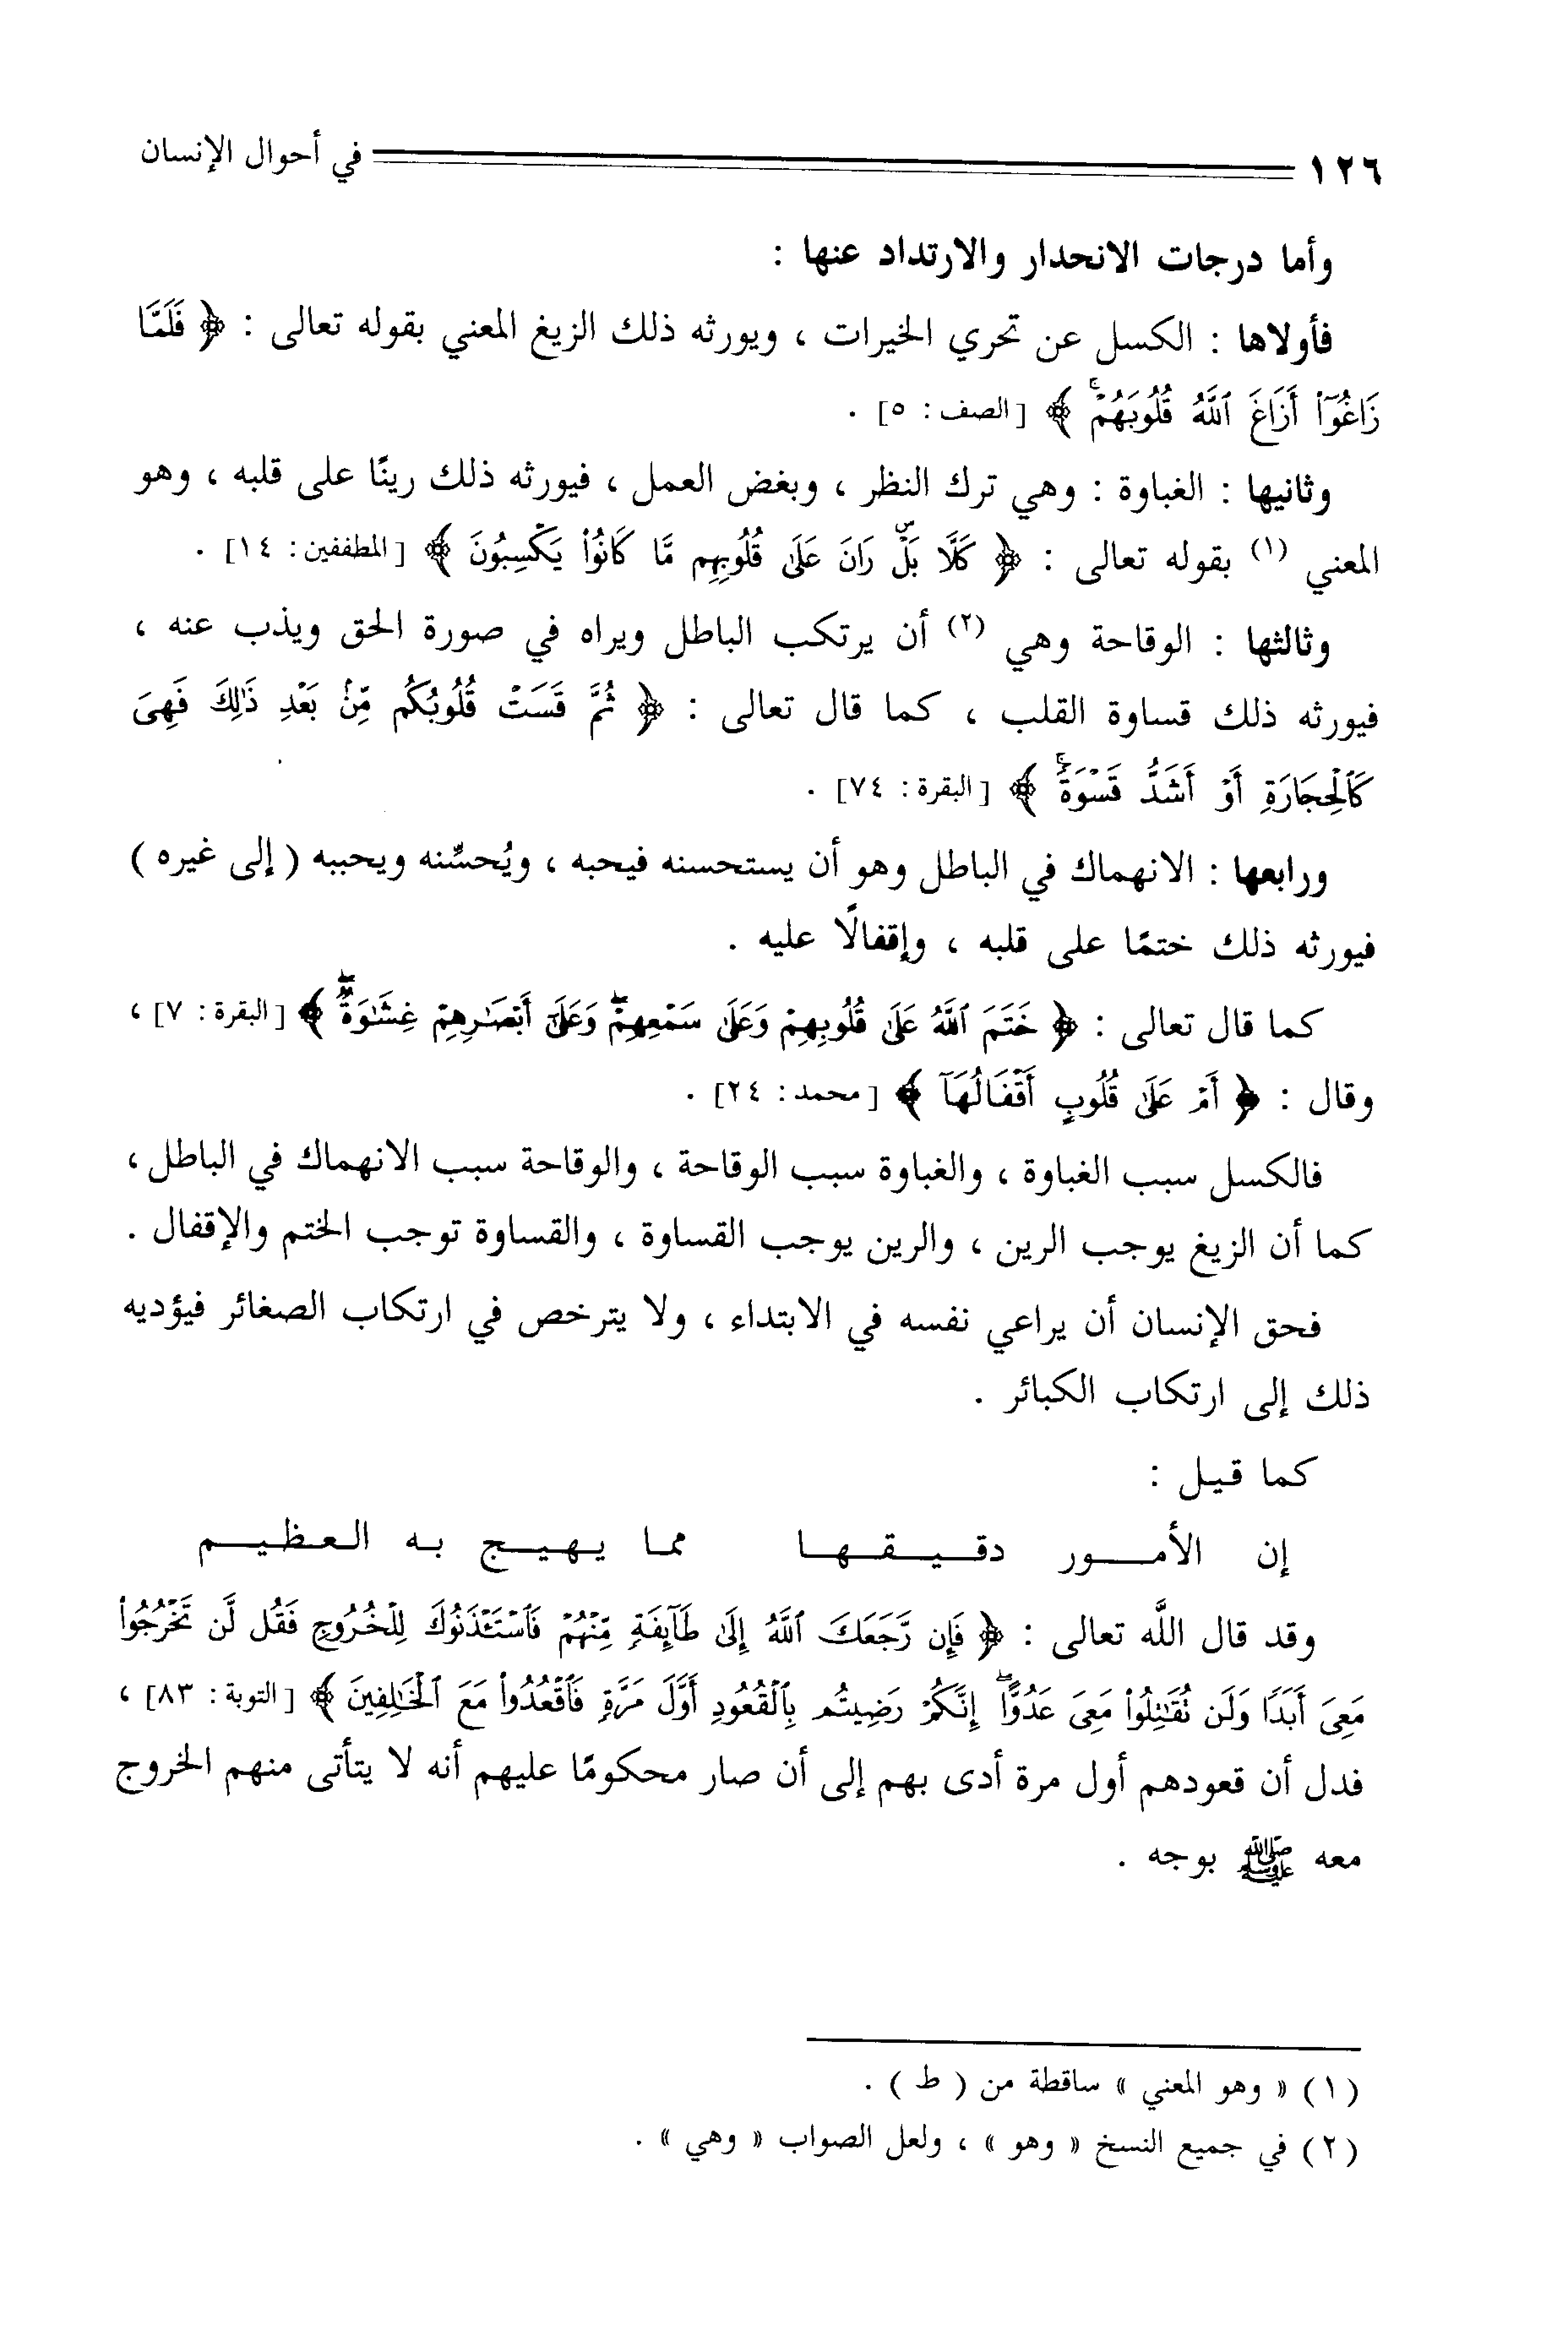 ١٢٦ في أحوال الإنسان
وأما درجات الانحدار والارتداد عنها :
فأولاها : الكسل عن تحري الخيرات ، ويورثه ذلك الزيغ المعني بقوله تعالى : ﴿ فَلَمَّا
زَاغُوٓا۟ أَزَاغَ ٱللَّهُ قُلُوبَهُمْ ۚ ﴾ [الصف : ٥] .
وثانيها : الغباوة : وهي ترك النظر ، وبغض العمل ، فيورثه ذلك رينًا على قلبه ، وهو
المعني (١) بقوله تعالى : ﴿ كَلَّا بَلْ ۜ رَانَ عَلَىٰ قُلُوبِهِم مَّا كَانُوا۟ يَكْسِبُونَ ﴾ [المطففين : ١٤] .
وثالثها : الوقاحة وهي (٢) أن يرتكب الباطل ويراه في صورة الحق ويذب عنه ،
فيورثه ذلك قساوة القلب ، كما قال تعالى : ﴿ ثُمَّ قَسَتْ قُلُوبُكُم مِّنۢ بَعْدِ ذَٰلِكَ فَهِىَ
كَٱلْحِجَارَةِ أَوْ أَشَدُّ قَسْوَةً ۚ ﴾ [البقرة : ٧٤] .
ورابعها : الانهماك في الباطل وهو أن يستحسنه فيحبه ، ويُحسِّنه ويحببه ( إلى غيره )
فيورثه ذلك ختمًا على قلبه ، وإقفالًا عليه .
كما قال تعالى : ﴿ خَتَمَ ٱللَّهُ عَلَىٰ قُلُوبِهِمْ وَعَلَىٰ سَمْعِهِمْ ۖ وَعَلَىٰٓ أَبْصَٰرِهِمْ غِشَٰوَةٌ ۖ ﴾ [البقرة : ٧] ،
وقال : ﴿ أَمْ عَلَىٰ قُلُوبٍ أَقْفَالُهَآ ﴾ [محمد : ٢٤] .
فالكسل سبب الغباوة ، والغباوة سبب الوقاحة ، والوقاحة سبب الانهماك في الباطل ،
كما أن الزيغ يوجب الرين ، والرين يوجب القساوة ، والقساوة توجب الختم والإقفال .
فحق الإنسان أن يراعي نفسه في الابتداء ، ولا يترخص في ارتكاب الصغائر فيؤديه
ذلك إلى ارتكاب الكبائر .
كما قيل :
إن الأمـــور دقـيـقـهـا مما يـهـيـج بـه الـعـظـيـم
وقد قال اللَّه تعالى : ﴿ فَإِن رَّجَعَكَ ٱللَّهُ إِلَىٰ طَآئِفَةٍ مِّنْهُمْ فَٱسْتَـْٔذَنُوكَ لِلْخُرُوجِ فَقُل لَّن تَخْرُجُوا۟
مَعِىَ أَبَدًا وَلَن تُقَٰتِلُوا۟ مَعِىَ عَدُوًّا ۖ إِنَّكُمْ رَضِيتُم بِٱلْقُعُودِ أَوَّلَ مَرَّةٍ فَٱقْعُدُوا۟ مَعَ ٱلْخَٰلِفِينَ ﴾ [التوبة : ٨٣] ،
فدل أن قعودهم أول مرة أدى بهم إلى أن صار محكومًا عليهم أنه لا يتأتى منهم الخروج
معه ﷺ بوجه .
(١) « وهو المعني » ساقطة من ( ط ) .
(٢) في جميع النسخ « وهو » ، ولعل الصواب « وهي » .